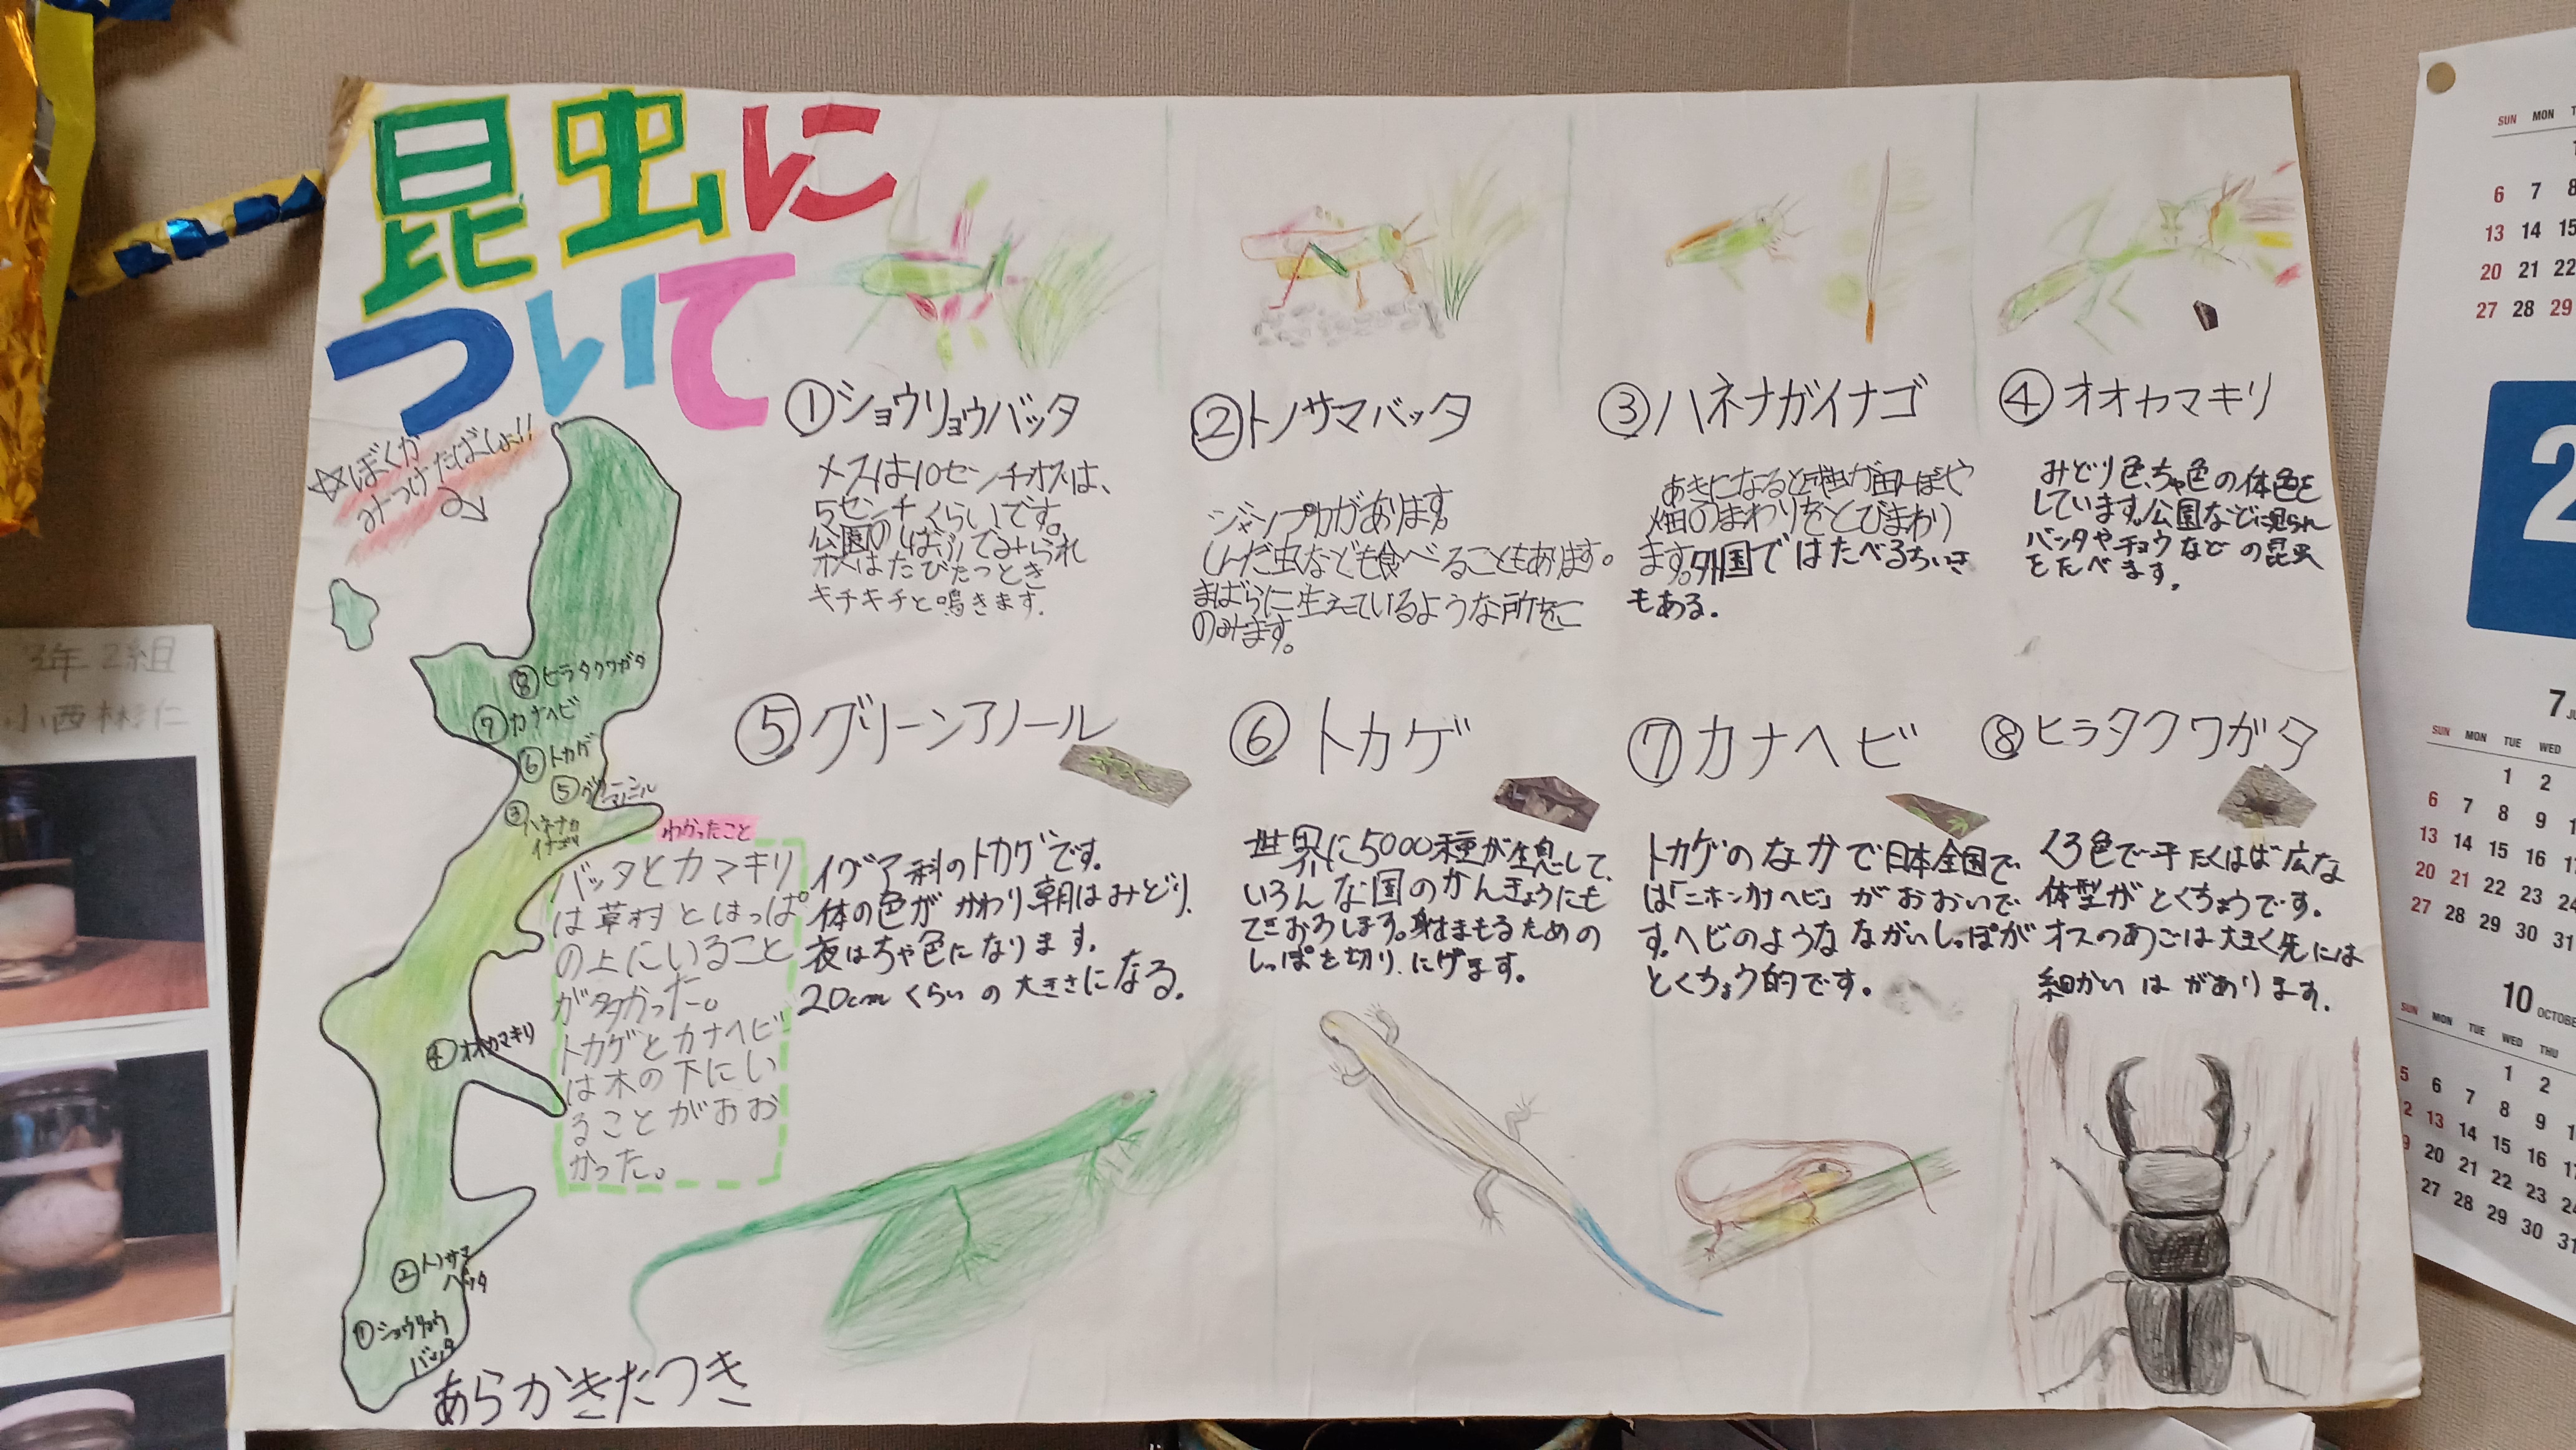 昆虫に
ついて
☆ぼくが
みつけたばしょ!!
⑧ヒラタクワガタ
⑦カナヘビ
⑥トカゲ
③ハネナガ
イナゴ
④オオカマキリ
②トノサマ
バッタ
①ショウリョウ
バッタ
あらかきたつき
わかったこと
バッタとカマキリ
は草村とはっぱ
の上にいること
が多かった。
トカゲとカナヘビ
は木の下にい
ることがおお
かった。
①ショウリョウバッタ
メスは10センチオスは、
5センチくらいです。
公園のしばふでみられ
オスはたびたつとき
キチキチと鳴きます.
②トノサマバッタ
ジャンプ力があります。
しんだ虫なども食べることもあります。
まばらに生えているような所をこ
のみます。
③ハネナガイナゴ
あきになると成虫が田んぼや
畑のまわりをとびまわり
ます。外国ではたべるちいき
もある.
④オオカマキリ
みどり色、ちゃ色の体色を
しています。公園などに見られ
バッタやチョウなどの昆虫
をたべます.
⑤グリーンアノール
イグアナ科のトカゲです.
体の色がかわり、朝はみどり、
夜はちゃ色になります.
20cmくらいの大きさになる.
⑥トカゲ
世界に5000種が生息して、
いろんな国のかんきょうにも
てきおうします。身をまもるための
しっぽを切り、にげます。
⑦カナヘビ
トカゲのなかで日本全国で
は「ニホンカナヘビ」がおおいで
す。ヘビのようなながいしっぽが
とくちょう的です。
⑧ヒラタクワガタ
くろ色で平たくはば広な
体型がとくちょうです.
オスのあごは大きく先には
細かいはがあります.
3年2組
SUN MON
6 7 8
13 14 15
20 21 22
27 28 29
2
7
SUN MON TUE WED
1 2
6 7 8 9
13 14 15 16
20 21 22 23
27 28 29 30 31
10 OCTOBER
SUN MON TUE WED THU
1 2
5 6 7 8 9
13 14 15 16
20 21 22 23
27 28 29 30 31